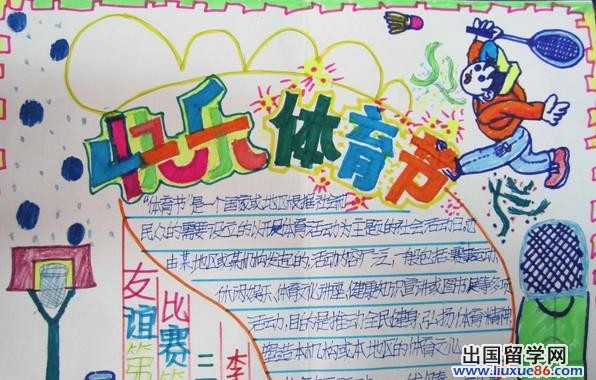 快乐体育节
"体育节"是一个国家或地区根据社会和
民众的需要设立的以开展体育活动为主题的社会活动日
由某地区或某机构发起的,活动内容广泛,一般包括:竞赛活动,
休闲娱乐、体育文化讲座、健康知识宣讲或图书展等多项
活动,目的是推动全民健身,弘扬体育精神
塑造本机构或本地区的体育文化
友谊第
比赛第
二
李
出国留学网
www.liuxue86.com